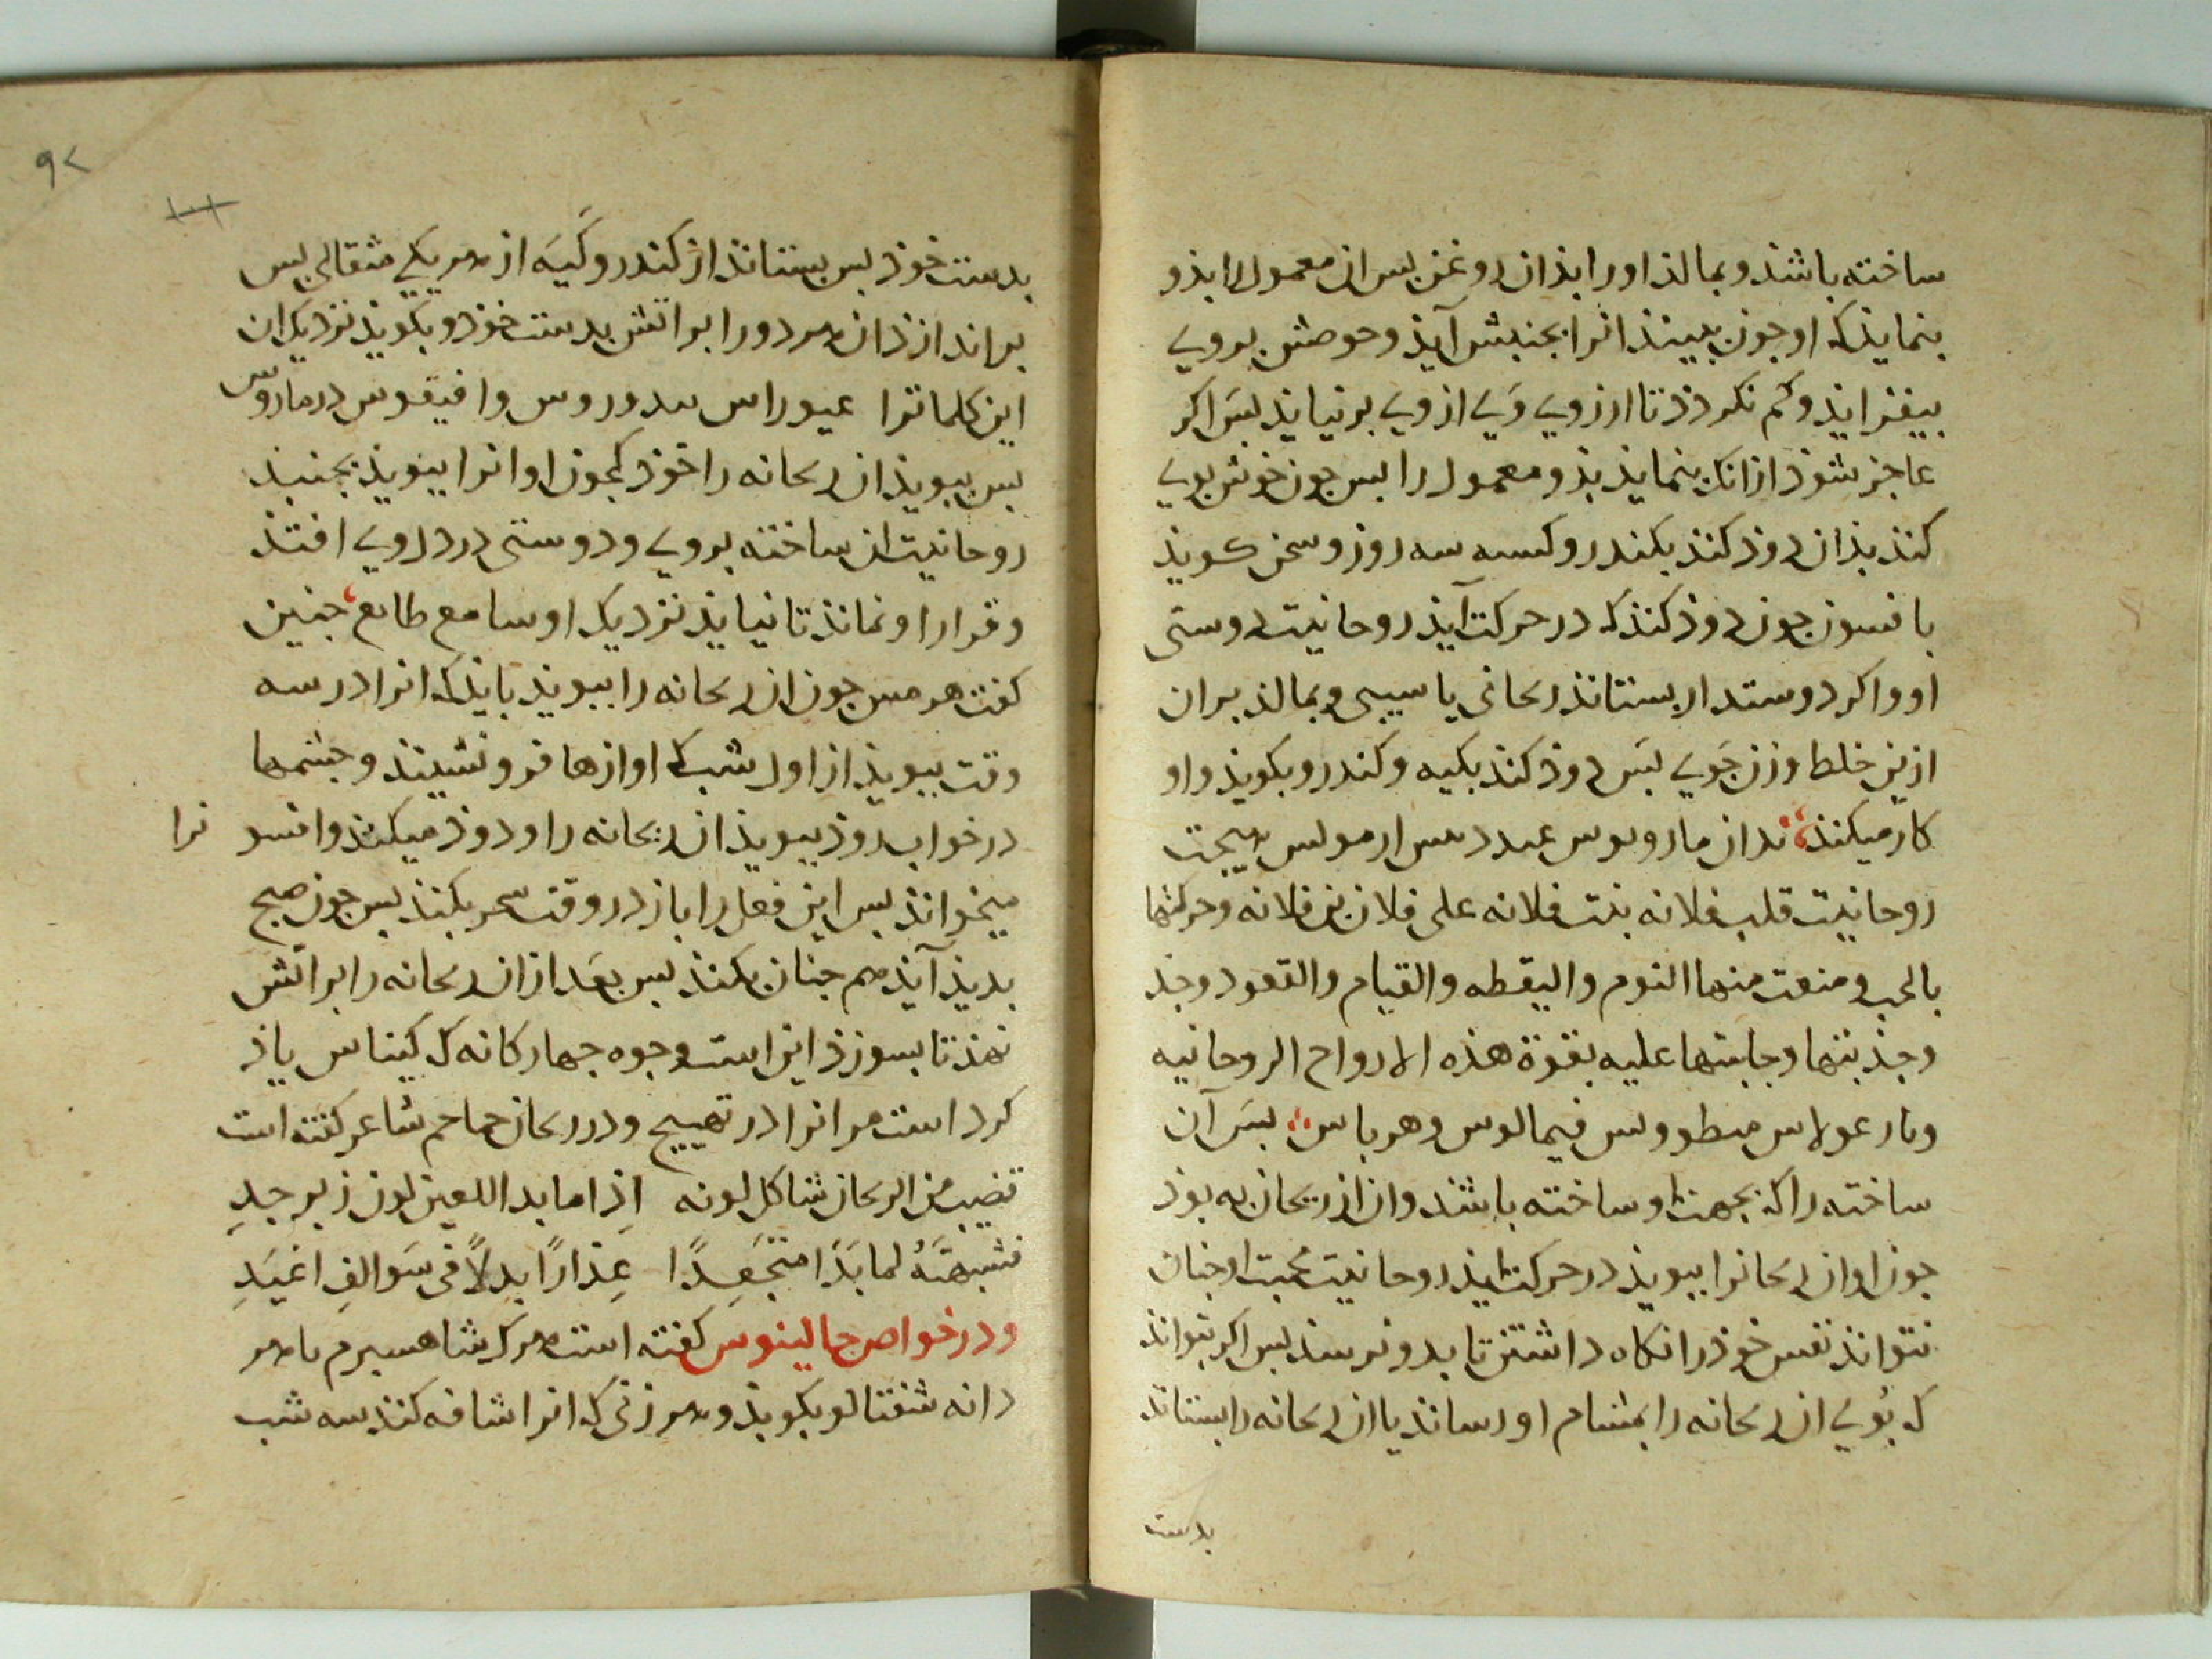 ساخته باشذ و بمالذ اورا بذان روغن بس ان معمول را بذو
بنمایذ که او جون ببینذ انرا بجنبش آیذ وحوصش بروی
بیفزایذ و کم نکردذ تا ارزوی وَی ازوی برنیایذ بسَ اکر
عاجز شوذ ازانک بنمایذ بذو معمول را بس جون خوش بویی
کنذ بذان دوذ کنذ بکندر و کسه سه روز و سخن کویذ
بافسون جون دوذ کنذ که در حرکت آیذ روحانیت دوستی
او و اکر دوستدار بستانذ ریحانی یا سیبی و بمالذ بران
ازین خلط وزن جَوی بسَ دوذ کنذ بکیه و کندر و بکویذ واو
کار میکنذ بدان هیجت
روحانیت قلب فلانه بنت فلانه علی فلان بن فلانه وحرکتها
بالحب و منعت منها النوم والیقظه والقیام والقعود وجذ
وجذبتها وجابتها علیه بقوة هذه الارواح الروحانیه
بسَ آن
ساخته را که بجهت او ساخته باشذ وان از ریحان به بوذ
جون او ان ریحانرا ببویذ در حرکت ایذ روحانیت محبت او جنان
نتوانذ نفس خوذ را نکاه داشتن تا بدو نرسذ بس اکر بتوانذ
که بُوی ان ریحانه را بمشام او رسانذ یا ان ریحانه را بستانذ
بدست
۹۲
بدست خوذ بس بستانذ از کندر و کَیَه از هر یکی مثقالی بس
براندازذ ان هر دو را بر اتش بدست خوذ و بکویذ نزدیک ان
این کلماترا
بس ببویذ ان ریحانه را خوذ که جون او انرا ببویذ بجنبذ
روحانیت ان ساخته بروی و دوستی در دل وی افتذ
و قرار او نمانذ تا نیایذ نزدیک او سامع طایع جنین
کفت هرمس جون ان ریحانه را ببویذ بایذ که انرا در سه
وقت ببویذ از اول شب که اوازها فرو نشینذ و جشمها
در خواب روذ ببویذ ان ریحانه را و دوذ میکنذ وافسو نرا
میخوانذ بس این فعل را باز در وقت سحر بکنذ بس جون صبح
بدیذ آیذ هم جنان بکنذ بس بعَد ازان ریحانه را بر اتش
نهذ تا بسوزذ این است وجوه جهار کانه که کیناس یاذ
کرد است مر انرا در تهییج و در ریحان حماحم شاعر کفته است
قضیب من الریحان شاکل لونه اِذا ما بدا للعین لون زبرجدِ
فشبهتَهُ لما بَدَا متجَعِدًا عِذارًا بدلاً فی سَوالفِ اغیَدِ
ودر خواص جالینوس کفته است هر که شاهسبرم با هر
دانه شفتالو بکوبذ و هر زنی که انرا شافه کنذ سه شب